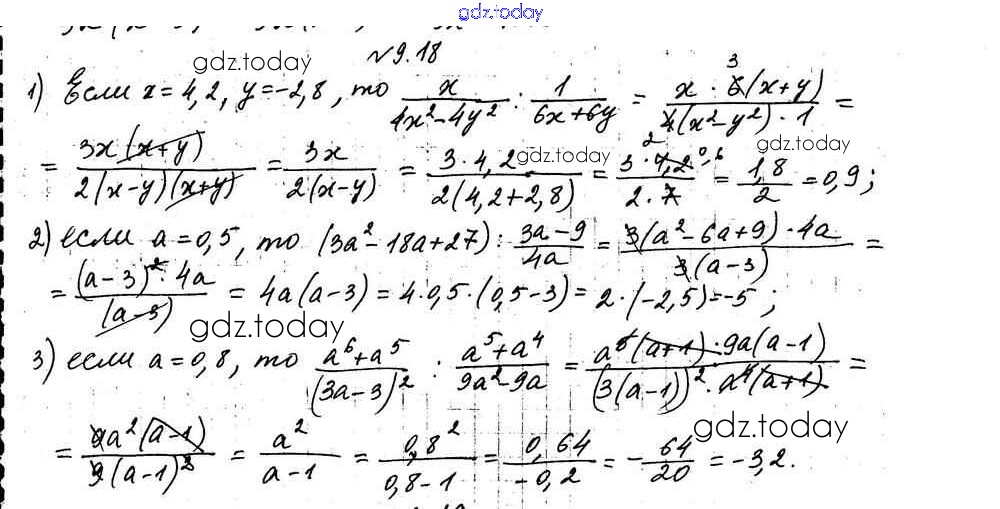 gdz.today
№9.18
gdz.today
1) Если x = 4,2, y = -2,8, то x/(4x² - 4y²) : 1/(6x + 6y) = (x · 6(x + y))/(4(x² - y²) · 1) =
3
2
gdz.today
gdz.today
= 3x(x + y)/(2(x - y)(x + y)) = 3x/(2(x - y)) = 3 · 4,2/(2(4,2 + 2,8)) = 3 · 4,2/(2 · 7) = 1,8/2 = 0,9;
0,6
2) если a = 0,5, то (3a² - 18a + 27) : (3a - 9)/4a = 3(a² - 6a + 9) · 4a/(3(a - 3)) =
= (a - 3)² · 4a/(a - 3) = 4a(a - 3) = 4 · 0,5 · (0,5 - 3) = 2 · (-2,5) = -5;
gdz.today
3) если a = 0,8, то (a⁶ + a⁵)/(3a - 3)² : (a⁵ + a⁴)/(9a² - 9a) = a⁵(a + 1) · 9a(a - 1)/((3(a - 1))² · a⁴(a + 1)) =
gdz.today
= 9a²(a - 1)/(9(a - 1)²) = a²/(a - 1) = 0,8²/(0,8 - 1) = 0,64/(-0,2) = -64/20 = -3,2.